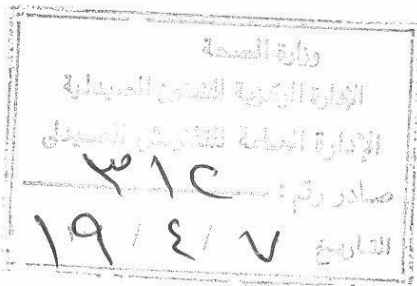 وزارة الصحة
الإدارة المركزية للشئون الصيدلية
الإدارة العامة للتفتيش الصيدلى
صادر رقم : ٣١٢
التاريخ ٧ / ٤ / ١٩